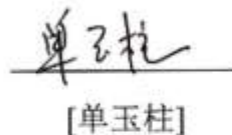 单玉柱
[单玉柱]